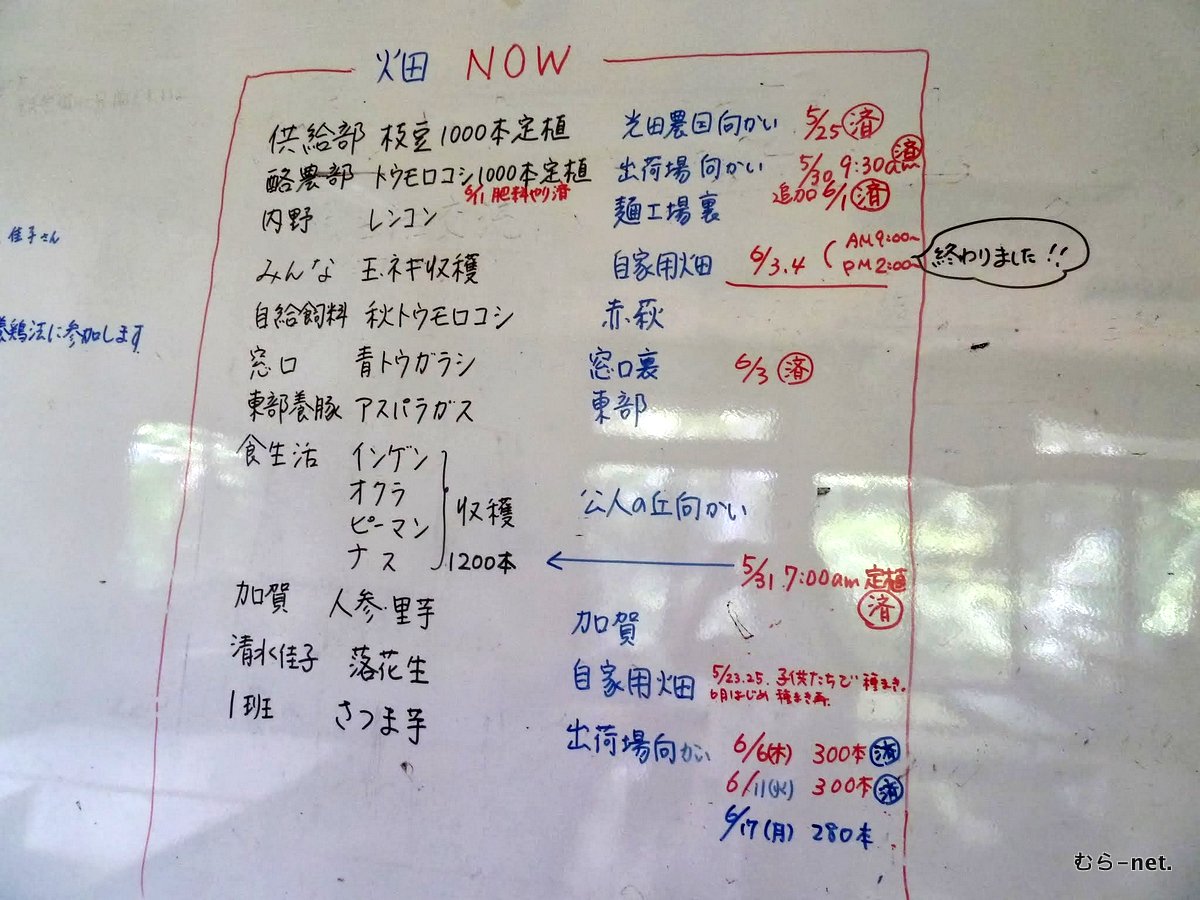 畑 NOW
供給部 枝豆1000本定植 光田農園向かい 5/25 済
酪農部 トウモロコシ1000本定植 出荷場向かい 5/30 9:30am 済
6/1 肥料やり済
内野 レンコン 麺工場裏 追加 6/1 済
佳子さん
みんな 玉ネギ収穫 自家用畑 6/3.4 (AM9:00〜
PM2:00〜
終わりました!!
自給飼料 秋トウモロコシ 赤萩
養鶏法に参加します
窓口 青トウガラシ 窓口裏 6/3 済
東部養豚 アスパラガス 東部
食生活 インゲン
オクラ
ピーマン 収穫 公人の丘向かい
ナス 1200本 ← 5/31 7:00am 定植
済
加賀 人参・里芋 加賀
清水佳子 落花生 自家用畑 5/23.25.子供たちで種まき。
6月はじめ 種まき
1班 さつま芋 出荷場向かい 6/6(木) 300本 済
6/11(火) 300本 済
6/17(月) 280本
むら-net.